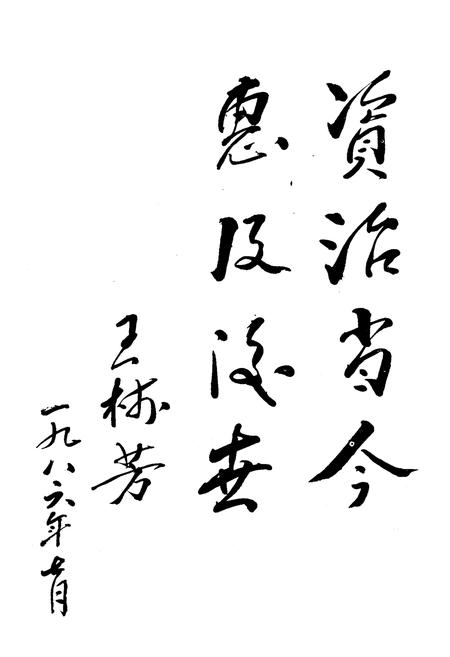 資治当今
惠及後世
王林芳
一九八六年七月